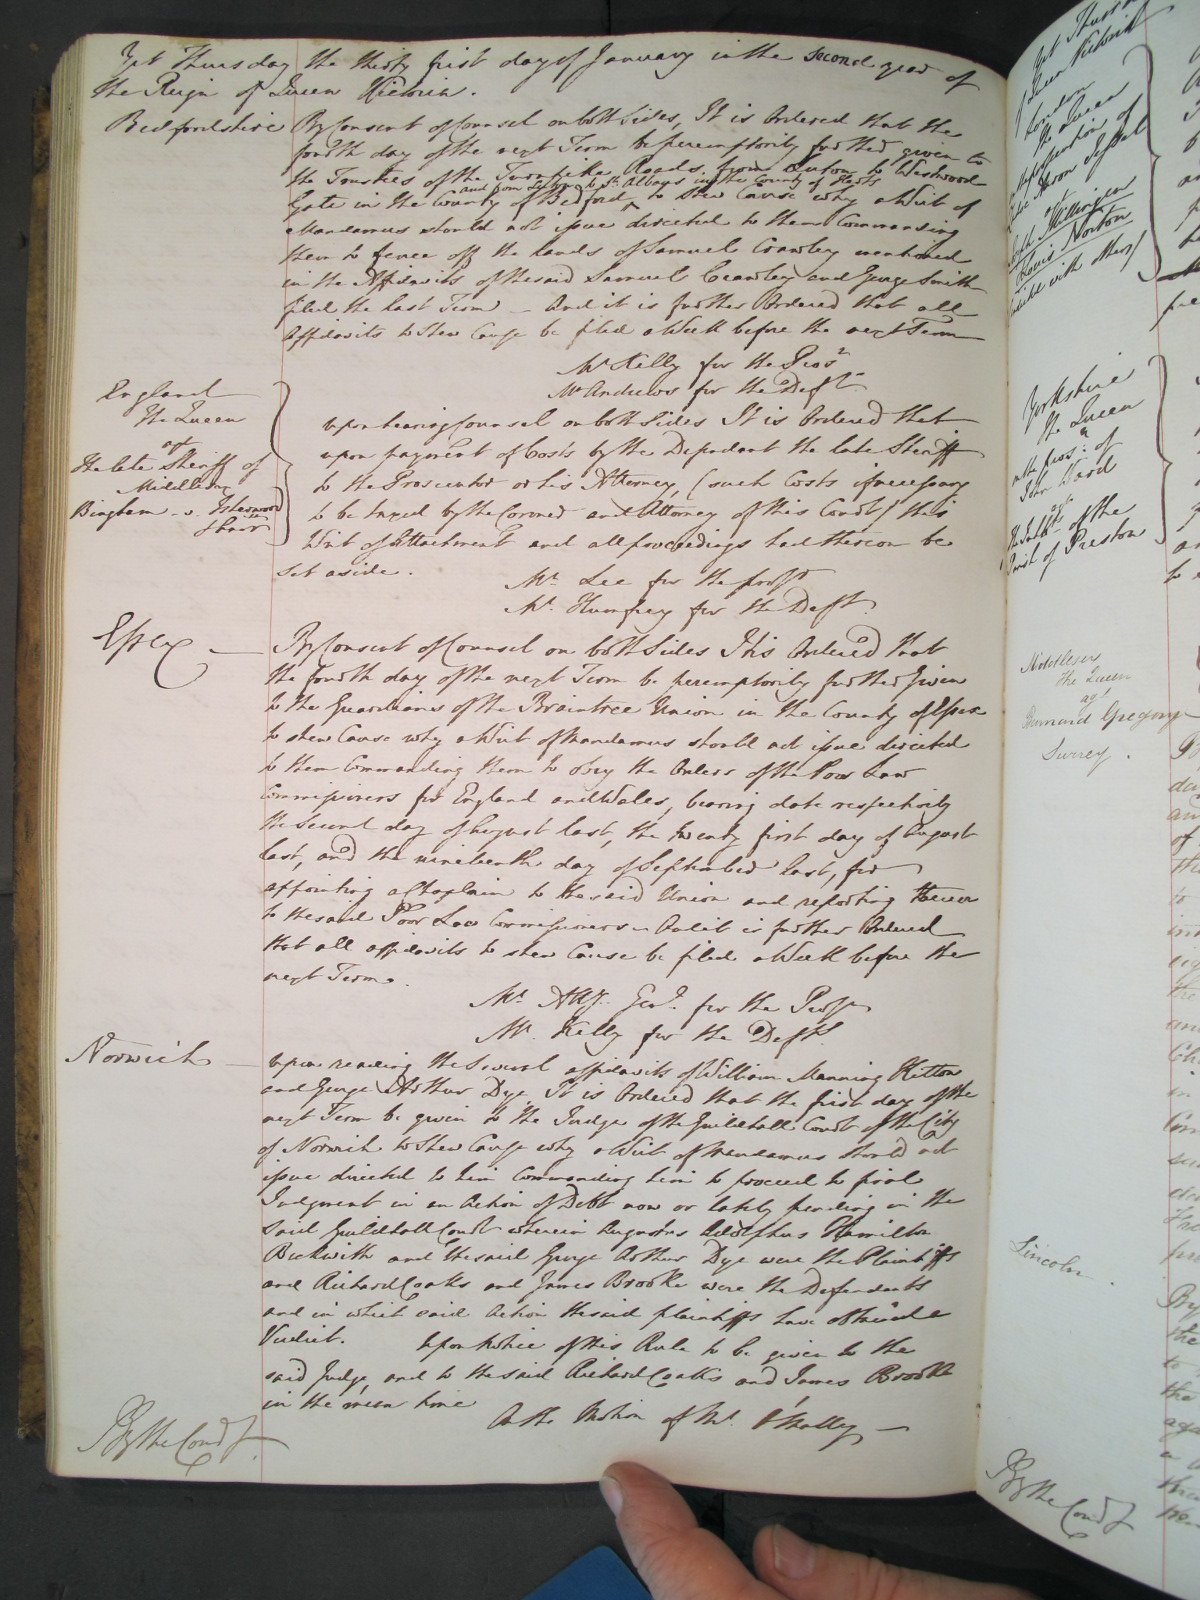 Yet Thursday the thirty first day of January in the second year of
the Reign of Queen Victoria.
Bedfordshire By Consent of Counsel on both Sides, It is Ordered that the
fourth day of the next Term be peremptorily further given to
the Trustees of the Turnpike Roads from Luton to Westwood
and from Luton to St. Albans in the County of Herts
Gate in the County of Bedford ^ to shew Cause why a Writ of
Mandamus should not issue directed to them Commanding
them to fence off the lands of Samuel Crawley mentioned
in the Affidavits of the said Samuel Crawley and George Smith
filed the last Term – And it is further Ordered that all
Affidavits to shew Cause be filed a Week before the next Term
Mr Kelly for the Pros.r
Mr Andrews for the Deft.
England
The Queen
agt
The late Sheriff of
Middlesex
Bingham v. Isherwood
upon hearing Counsel on both Sides It is Ordered that
upon payment of Costs by the Defendant the late Sheriff
to the Prosecutor or his Attorney, (such Costs if necessary
to be taxed by the Coroner and Attorney of this Court) this
Writ of Attachment and all proceedings had thereon be
set aside.
Mr. Lee for the prosr
Mr. Humfrey for the Deft.
Essex
By Consent of Counsel on both Sides It is Ordered that
the fourth day of the next Term be peremptorily further Given
to the Guardians of the Braintree Union in the County of Essex
to shew Cause why a Writ of Mandamus should not issue directed
to them Commanding them to obey the Orders of the Poor Law
Commissioners for England and Wales, bearing date respectively
the Second day of August last, the twenty first day of August
last, and the nineteenth day of September last, for
appointing a Chaplain to the said Union and reporting thereon
to the said Poor Law Commissioners – And it is further Ordered
that all affidavits to shew Cause be filed a Week before the
next Term.
Mr. Atty. Genl. for the Prosr
Mr. Kelly for the Defts.
Norwich
upon reading the several affidavits of William Manning Kitton
and George Arthur Dye, It is Ordered that the first day of the
next Term be given to the Judge of the Guildhall Court of the City
of Norwich to shew Cause why a Writ of Mandamus should not
issue directed to him Commanding him to proceed to final
Judgment in an Action of Debt now or lately pending in the
said Guildhall Court wherein Augustus Adolphus Hamilton
Beckwith and the said George Arthur Dye were the Plaintiffs
and Richard Coaks and James Brooke were the Defendants
and in which said Action the said plaintiffs have obtained a
Verdict. Upon Notice of this Rule to be given to the
said Judge, and to the said Richard Coaks and James Brooke
in the mean time
On the Motion of Mr. O'Malley
By the Court.
London
the Queen
on the
prosecution of
agt
Louis Norton
Yorkshire
The Queen
on the pros: of
John Ward
agt
The Inhbts of the
Parish of Preston
Middlesex
the Queen
agt
Bernard Gregory
Surrey.
Lincoln.
By the Court